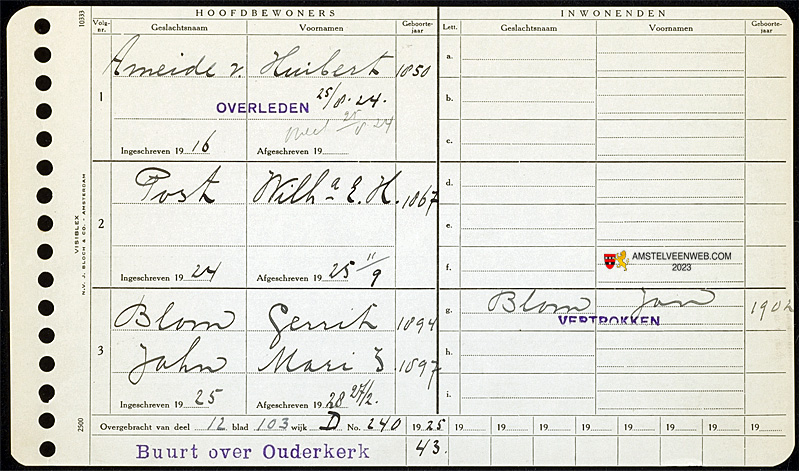 HOOFDBEWONERS
INWONENDEN
10333
Volg-nr. Geslachtsnaam Voornamen Geboorte-jaar
Lett. Geslachtsnaam Voornamen Geboorte-jaar
1 Ameide v. Huibert 1850
OVERLEDEN 25/8.24.
25/8 24
Ingeschreven 19 16 Afgeschreven 19
2 Post Wilha E. H. 1867
Ingeschreven 19 24 Afgeschreven 19 25 11/9
3 Blom Gerrit 1894
John Mari 1897
Ingeschreven 19 25 Afgeschreven 19 28 27/2.
a.
b.
c.
d.
e.
f.
AMSTELVEENWEB.COM
2023
g. Blom Jan 1902
VERTROKKEN
h.
i.
VISIBLEX
N.V. J. BLOCH & CO. - AMSTERDAM
2900
Overgebracht van deel 12 blad 103 wijk D No. 240 19 25 19 19 19 19 19 19 19 19
Buurt over Ouderkerk 43.